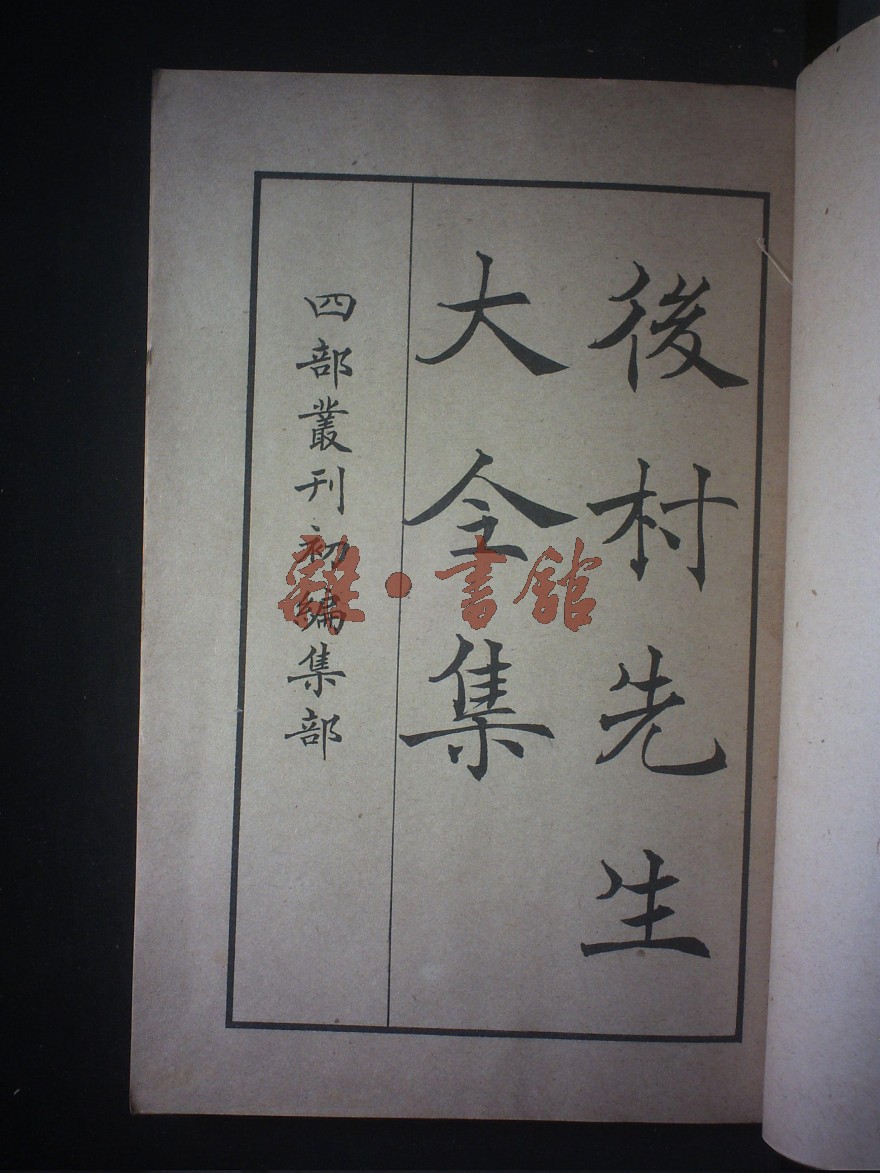 後村先生
大全集
四部叢刊初編集部
書館